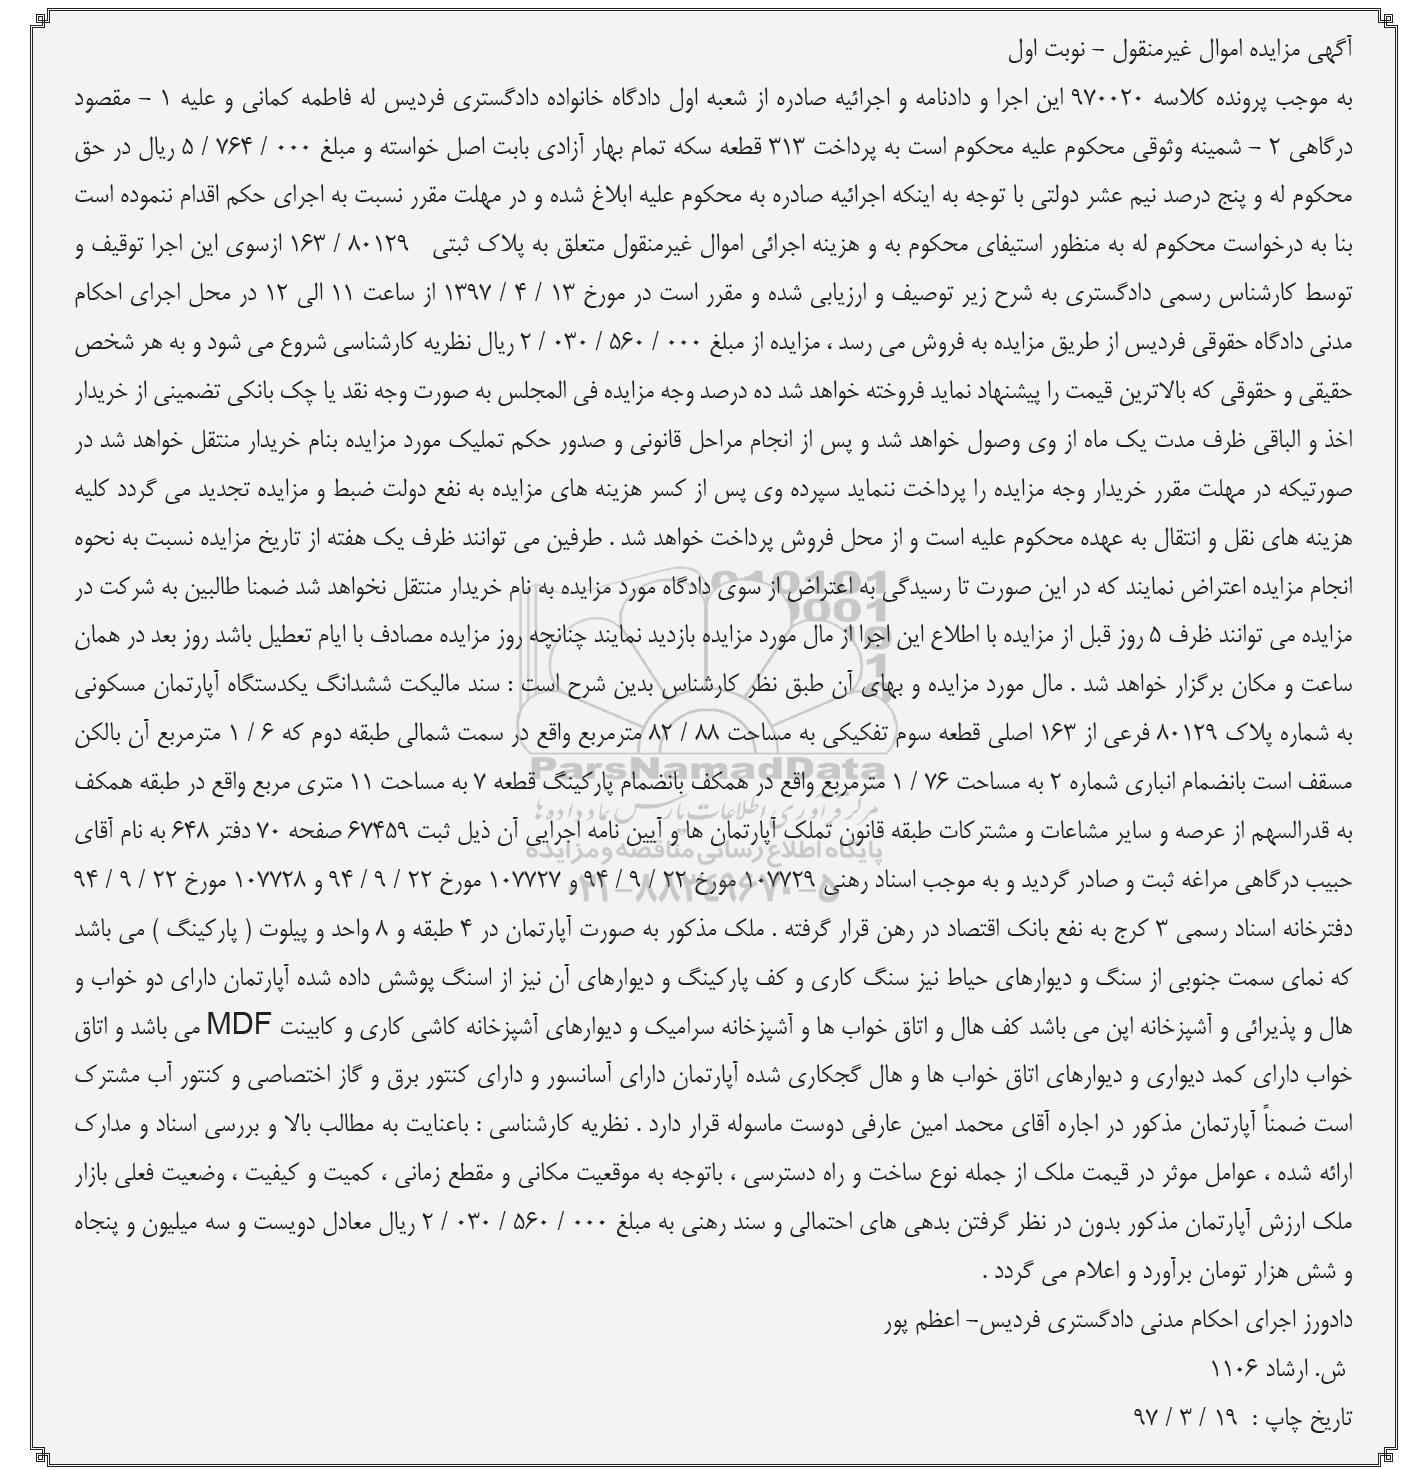 آگهی مزایده اموال غیرمنقول – نوبت اول
به موجب پرونده کلاسه ۹۷۰۰۲۰ این اجرا و دادنامه و اجرائیه صادره از شعبه اول دادگاه خانواده دادگستری فردیس له فاطمه کمانی و علیه ۱ – مقصود
درگاهی ۲ – شمینه وثوقی محکوم علیه محکوم است به پرداخت ۳۱۳ قطعه سکه تمام بهار آزادی بابت اصل خواسته و مبلغ ۰۰۰ / ۷۶۴ / ۵ ریال در حق
محکوم له و پنج درصد نیم عشر دولتی با توجه به اینکه اجرائیه صادره به محکوم علیه ابلاغ شده و در مهلت مقرر نسبت به اجرای حکم اقدام ننموده است
بنا به درخواست محکوم له به منظور استیفای محکوم به و هزینه اجرائی اموال غیرمنقول متعلق به پلاک ثبتی ۸۰۱۲۹ / ۱۶۳ ازسوی این اجرا توقیف و
توسط کارشناس رسمی دادگستری به شرح زیر توصیف و ارزیابی شده و مقرر است در مورخ ۱۳ / ۴ / ۱۳۹۷ از ساعت ۱۱ الی ۱۲ در محل اجرای احکام
مدنی دادگاه حقوقی فردیس از طریق مزایده به فروش می رسد ، مزایده از مبلغ ۰۰۰ / ۵۶۰ / ۰۳۰ / ۲ ریال نظریه کارشناسی شروع می شود و به هر شخص
حقیقی و حقوقی که بالاترین قیمت را پیشنهاد نماید فروخته خواهد شد ده درصد وجه مزایده فی المجلس به صورت وجه نقد یا چک بانکی تضمینی از خریدار
اخذ و الباقی ظرف مدت یک ماه از وی وصول خواهد شد و پس از انجام مراحل قانونی و صدور حکم تملیک مورد مزایده بنام خریدار منتقل خواهد شد در
صورتیکه در مهلت مقرر خریدار وجه مزایده را پرداخت ننماید سپرده وی پس از کسر هزینه های مزایده به نفع دولت ضبط و مزایده تجدید می گردد کلیه
هزینه های نقل و انتقال به عهده محکوم علیه است و از محل فروش پرداخت خواهد شد . طرفین می توانند ظرف یک هفته از تاریخ مزایده نسبت به نحوه
انجام مزایده اعتراض نمایند که در این صورت تا رسیدگی به اعتراض از سوی دادگاه مورد مزایده به نام خریدار منتقل نخواهد شد ضمنا طالبین به شرکت در
مزایده می توانند ظرف ۵ روز قبل از مزایده با اطلاع این اجرا از مال مورد مزایده بازدید نمایند چنانچه روز مزایده مصادف با ایام تعطیل باشد روز بعد در همان
ساعت و مکان برگزار خواهد شد . مال مورد مزایده و بهای آن طبق نظر کارشناس بدین شرح است : سند مالیکت ششدانگ یکدستگاه آپارتمان مسکونی
به شماره پلاک ۸۰۱۲۹ فرعی از ۱۶۳ اصلی قطعه سوم تفکیکی به مساحت ۸۸ / ۸۲ مترمربع واقع در سمت شمالی طبقه دوم که ۶ / ۱ مترمربع آن بالکن
مسقف است بانضمام انباری شماره ۲ به مساحت ۷۶ / ۱ مترمربع واقع در همکف بانضمام پارکینگ قطعه ۷ به مساحت ۱۱ متری مربع واقع در طبقه همکف
به قدرالسهم از عرصه و سایر مشاعات و مشترکات طبقه قانون تملک آپارتمان ها و آیین نامه اجرایی آن ذیل ثبت ۶۷۴۵۹ صفحه ۷۰ دفتر ۶۴۸ به نام آقای
حبیب درگاهی مراغه ثبت و صادر گردید و به موجب اسناد رهنی ۱۰۷۷۲۹ مورخ ۲۲ / ۹ / ۹۴ و ۱۰۷۷۲۷ مورخ ۲۲ / ۹ / ۹۴ و ۱۰۷۷۲۸ مورخ ۲۲ / ۹ / ۹۴
دفترخانه اسناد رسمی ۳ کرج به نفع بانک اقتصاد در رهن قرار گرفته . ملک مذکور به صورت آپارتمان در ۴ طبقه و ۸ واحد و پیلوت ( پارکینگ ) می باشد
که نمای سمت جنوبی از سنگ و دیوارهای حیاط نیز سنگ کاری و کف پارکینگ و دیوارهای آن نیز از اسنگ پوشش داده شده آپارتمان دارای دو خواب و
هال و پذیرائی و آشپزخانه اپن می باشد کف هال و اتاق خواب ها و آشپزخانه سرامیک و دیوارهای آشپزخانه کاشی کاری و کابینت MDF می باشد و اتاق
خواب دارای کمد دیواری و دیوارهای اتاق خواب ها و هال گجکاری شده آپارتمان دارای آسانسور و دارای کنتور برق و گاز اختصاصی و کنتور آب مشترک
است ضمناً آپارتمان مذکور در اجاره آقای محمد امین عارفی دوست ماسوله قرار دارد . نظریه کارشناسی : باعنایت به مطالب بالا و بررسی اسناد و مدارک
ارائه شده ، عوامل موثر در قیمت ملک از جمله نوع ساخت و راه دسترسی ، باتوجه به موقعیت مکانی و مقطع زمانی ، کمیت و کیفیت ، وضعیت فعلی بازار
ملک ارزش آپارتمان مذکور بدون در نظر گرفتن بدهی های احتمالی و سند رهنی به مبلغ ۰۰۰ / ۵۶۰ / ۰۳۰ / ۲ ریال معادل دویست و سه میلیون و پنجاه
و شش هزار تومان برآورد و اعلام می گردد .
دادورز اجرای احکام مدنی دادگستری فردیس– اعظم پور
ش. ارشاد ۱۱۰۶
تاریخ چاپ : ۱۹ / ۳ / ۹۷
ParsNamadData
مرکز فرآوری اطلاعات پارس نماد داده ها
پایگاه اطلاع رسانی مناقصه و مزایده
۰۲۱–۸۸۳۴۹۶۷۰–۵